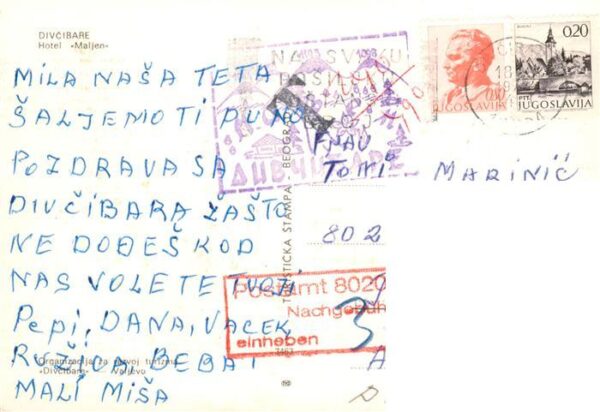 DIVČIBARE
Hotel »Maljen«
MILA NAŠA TETA
ŠALJEMO TI PUNO
POZDRAVA SA
DIVČIBARA ZAŠTO
NE DOĐEŠ KOD
NAS VOLETE TVOJI
Pepi, DANA, VACEK
RUŽICA BEBA I
MALI MIŠA
Organizacija za razvoj turizma
»Divčibare« — Valjevo
TURISTICKA STAMPA - BEOGRAD
ДИВЧИБАРЕ
T
0,20
JUGOSLAVIJA
JUGOSLAVIJA
FRAU
TONI MARINIĆ
802
Postamt 8020
Nachgebühr
einheben
3
A